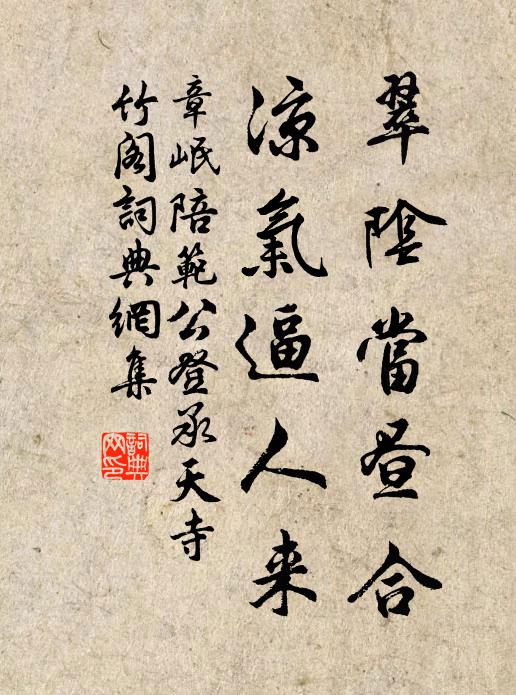 翠陰當昼合
涼氣逼人来
章岷陪範公登承天寺
竹閣詞典網集
詞典
网印